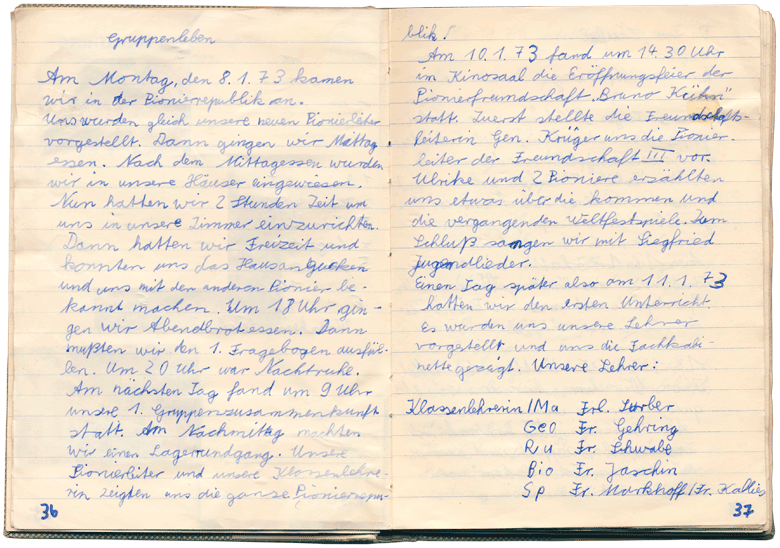 Gruppenleben
Am Montag, den 8.1.73 kamen
wir in der Pionierrepublik an.
Uns wurden gleich unsere neuen Pionierleiter
vorgestellt. Dann gingen wir Mittag
essen. Nach dem Mittagessen wurden
wir in unsere Häuser eingewiesen.
Nun hatten wir 2 Stunden Zeit um
uns in unsere Zimmer einzurichten.
Dann hatten wir Freizeit und
konnten uns das Haus angucken
und uns mit den anderen Pionier be-
kannt machen. Um 18 Uhr gin-
gen wir Abendbrot essen. Dann
mußten wir den 1. Fragebogen ausfül-
len. Um 20 Uhr war Nachtruhe.
Am nächsten Tag fand um 9 Uhr
unsere 1. Gruppenzusammenkunft
statt. Am Nachmittag machten
wir einen Lagerrundgang. Unsere
Pionierleiter und unsere Klassenlehre-
rin zeigten uns die ganze Pionierrepu-
36
blik!
Am 10.1.73 fand um 14.30 Uhr
im Kinosaal die Eröffnungsfeier der
Pionierfreundschaft "Bruno Kühn"
statt. Zuerst stellte die Freundschafts-
leiterin Gen. Krüger uns die Pionier-
leiter der Freundschaft III vor.
Ulrike und 2 Pioniere erzählten
uns etwas über die kommen und
die vergangenden Weltfestspiele. Zum
Schluß sangen wir mit Siegfried
Jugendlieder.
Einen Tag später also am 11.1.73
hatten wir den ersten Unterricht.
Es wurden uns unsere Lehrer
vorgestellt und uns die Fachkabi-
nette gezeigt. Unsere Lehrer:
Klassenlehrerin/Ma Frl.
Geo Fr. Gehring
Ru Fr. Schwabe
Bio Fr. Jaschin
Sp Fr. Markhoff/Fr. Kallies
37